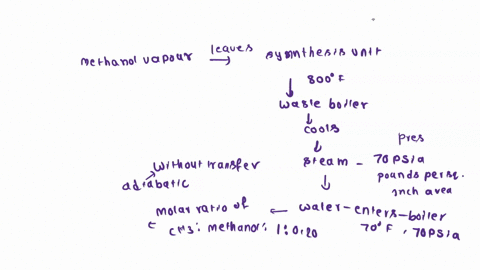 methanol vapour leaves → synnthesis unit
↓ 800°F
waste boiler
↓
cools
↓
steam - 70 PSia
pres
pounds per sq. inch area
without transfer
adiabatic
↓
water-enters-boiler
70°F, 70PSIA
←
molar ratio of
CH3: methanol: 1:0.20